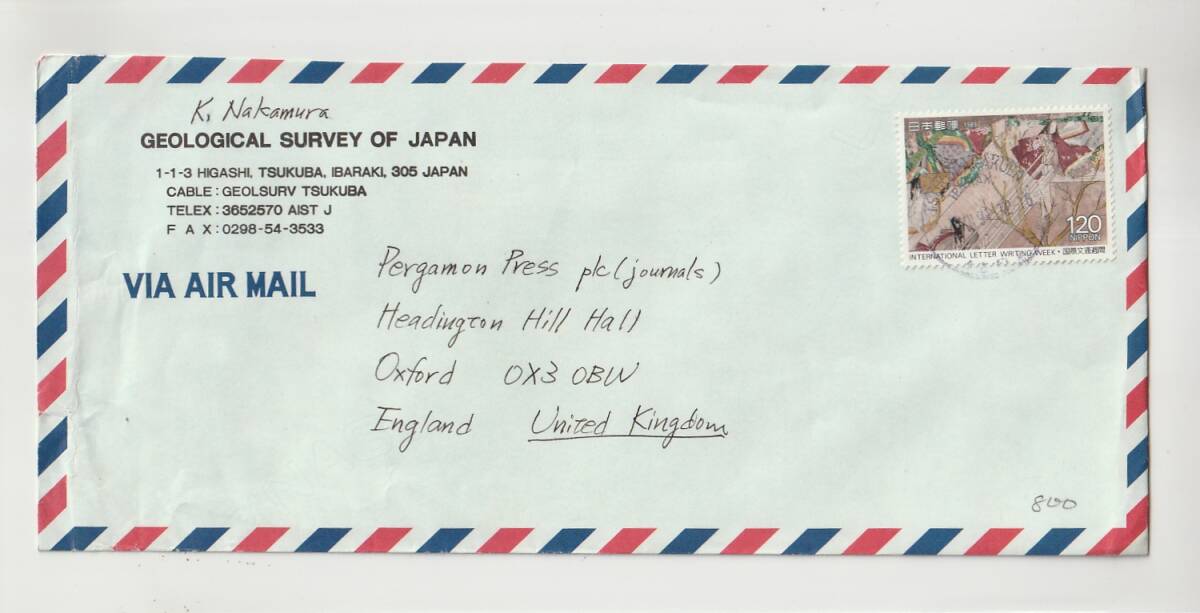 K. Nakamura
GEOLOGICAL SURVEY OF JAPAN
1-1-3 HIGASHI, TSUKUBA, IBARAKI, 305 JAPAN
CABLE : GEOLSURV TSUKUBA
TELEX : 3652570 AIST J
F A X : 0298-54-3533
VIA AIR MAIL
日本郵便 1989
120
NIPPON
INTERNATIONAL LETTER WRITING WEEK・国際文通週間
Pergamon Press plc (journals)
Headington Hill Hall
Oxford OX3 0BW
England United Kingdom
800